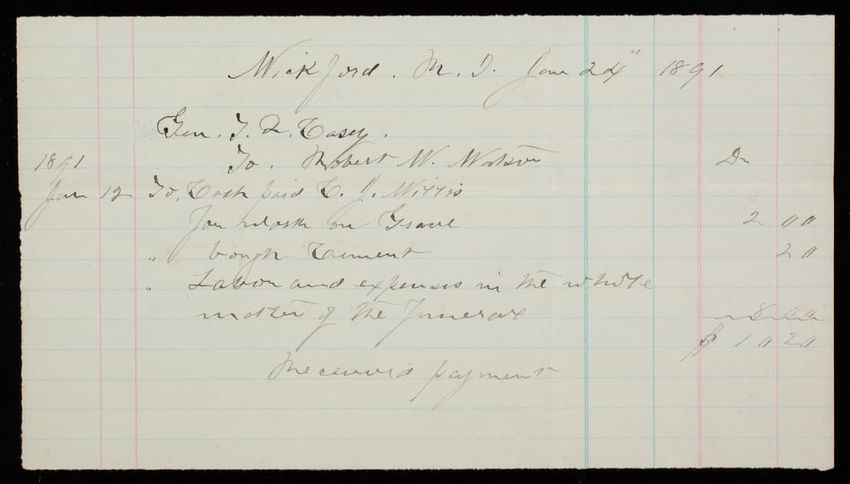 Wickford. R. I. Jan 24" 1891
Gen. T. L. Casey.
1891 To. Robert W. Watson Dr
Jan 12 To. Cash paid C. J. Willis
for Work on Grave 2 00
" bough Cement 20
" Labor and expenses in the whole
matter of the Funeral 8.00
$ 10 20
Received payment